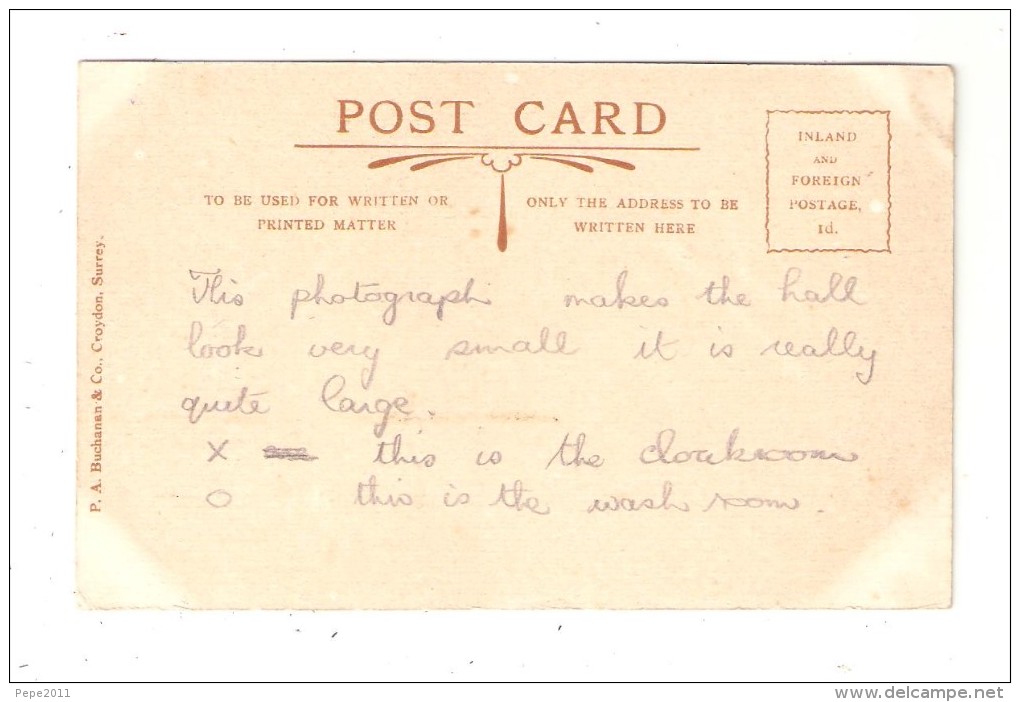 POST CARD
TO BE USED FOR WRITTEN OR
PRINTED MATTER
ONLY THE ADDRESS TO BE
WRITTEN HERE
INLAND
AND
FOREIGN
POSTAGE,
1d.
P. A. Buchanan & Co., Croydon, Surrey.
This photograph makes the hall
look very small it is really
quite large.
X this is the cloakroom
O this is the wash room.
Pepe2011
www.delcampe.net